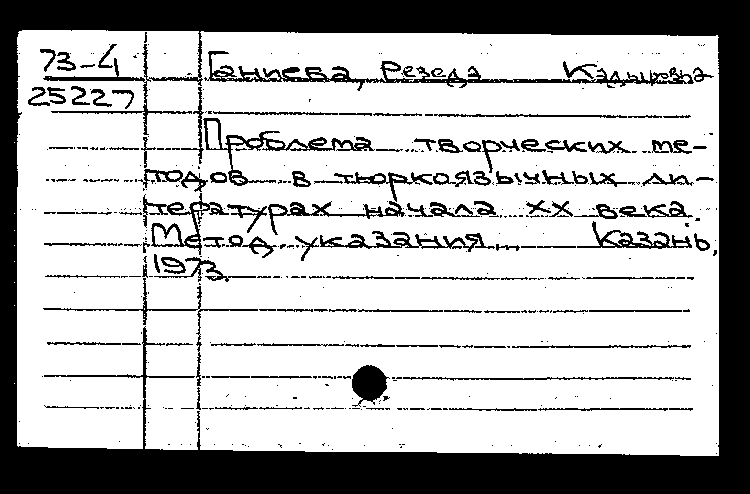 73-4 Ганиева, Резеда Кадыровна
25227
Проблема творческих ме-
тодов в тюркоязычных ли-
тературах начала XX века.
Метод. указания... Казань,
1973.